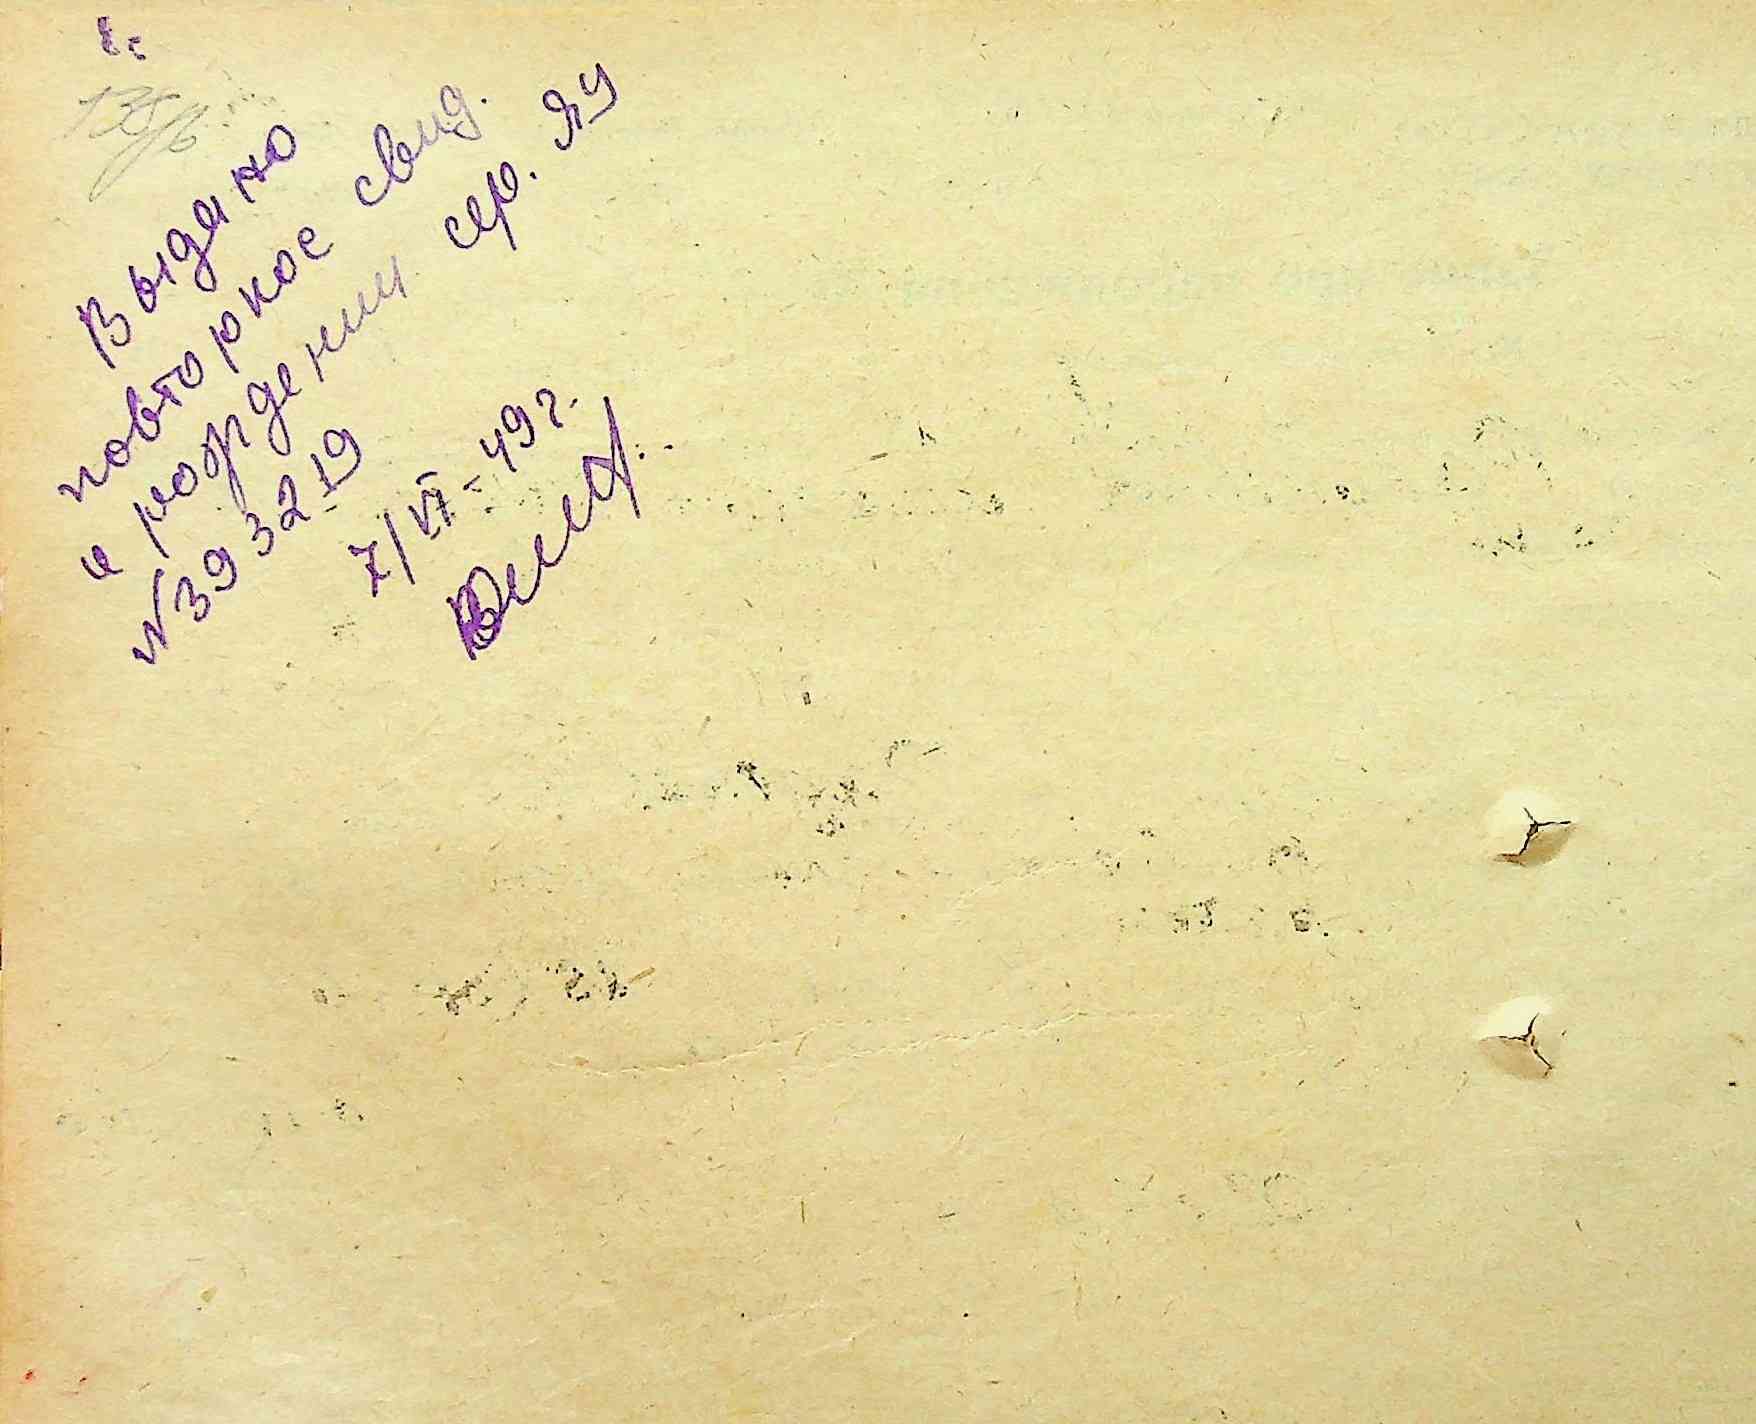 138/6
Выдано
повторное свид.
и рождении сер. ЯУ
№393219
7/VI-49 г.